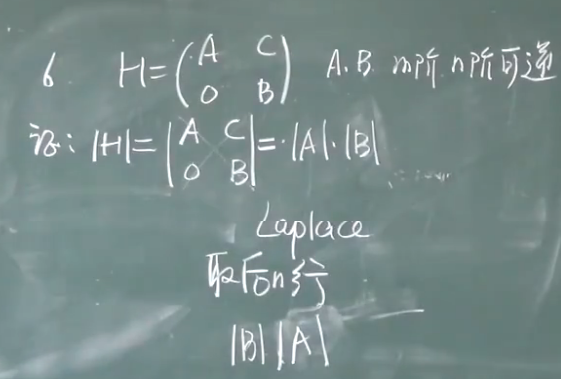 6 H=(A C A.B. m阶 n阶可逆
0 B)
证: |H|=|A C|=·|A|·|B|
|0 B|
Laplace
取后n行
|B||A|